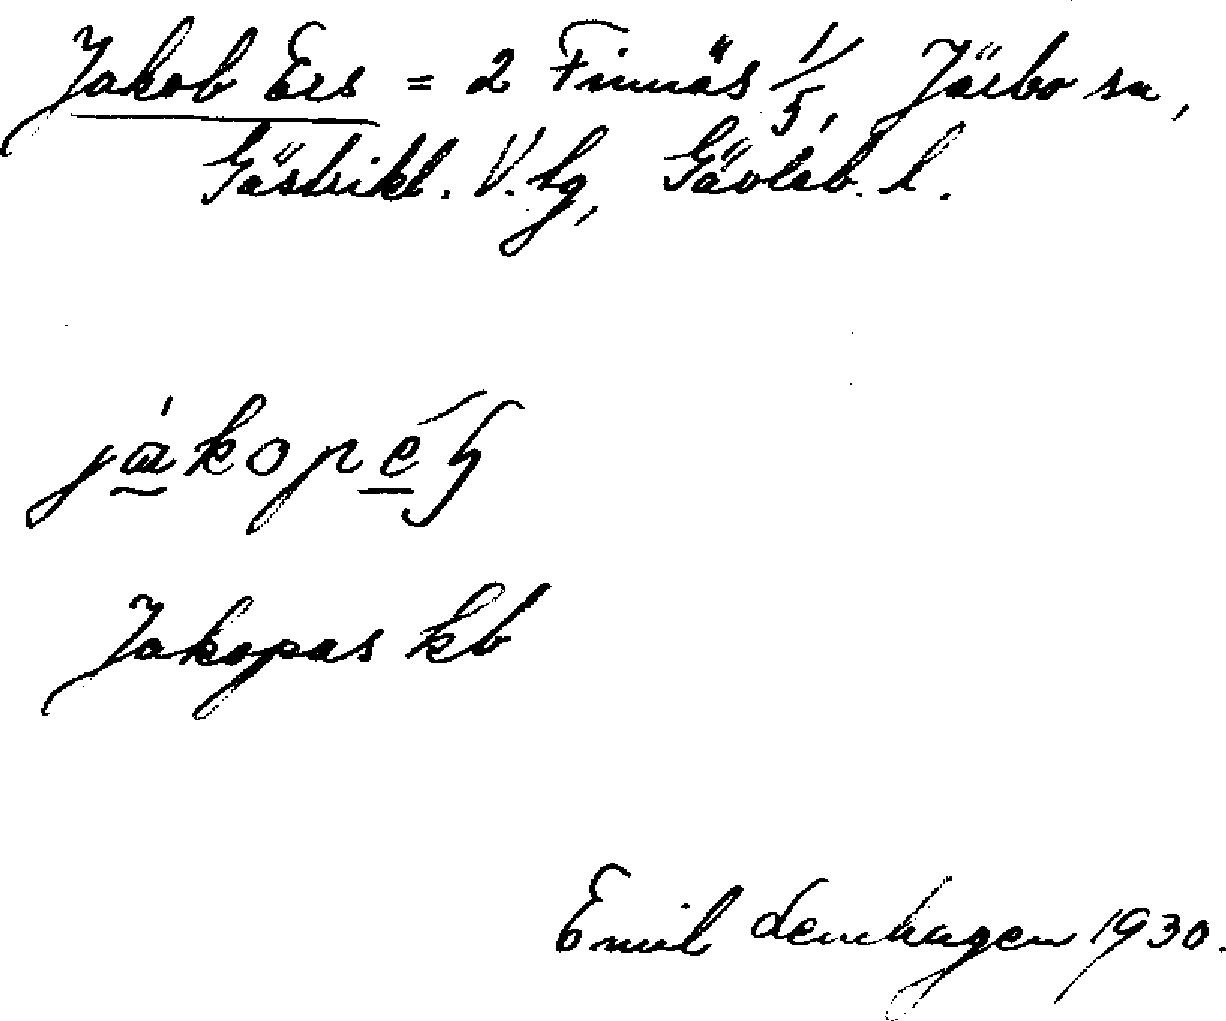 Jakob Ers = 2 Finnäs 1/5, Järbo sn,
Gästrikl. V. tg, Gävleb. l.
Jakopas kb
Emil Lenhagen 1930.